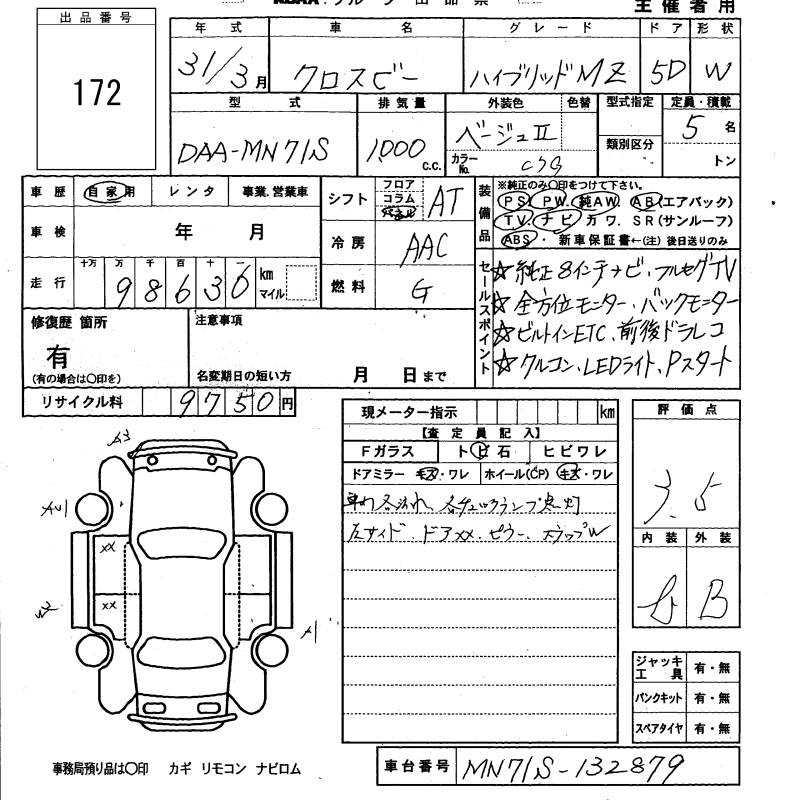 主催者用
出品番号
172
年式 車名 グレード ドア 形状
31/3月 クロスビー ハイブリッドMZ 5D W
型式 排気量 外装色 色替 型式指定 定員・積載
DAA-MN71S 1000 c.c. ベージュII カラーNo. 類別区分 5名 トン
車歴 自家用 レンタ 事業.営業車
車検 年 月
走行 十万 万 千 百 十 一
98636 km マイル
シフト フロア コラム パネル AT
冷房 AAC
燃料 G
装備品 ※純正のみ○印をつけて下さい。
PS PW. 純AW. AB(エアバック)
TV. ナビ カワ. SR(サンルーフ)
ABS・ 新車保証書←(注) 後日送りのみ
セールスポイント
☆純正8インチナビ、フルセグTV
☆全方位モニター、バックモニター
☆ビルトインETC、前後ドラレコ
☆クルコン、LEDライト、Pスタート
修復歴 箇所
有
(有の場合は○印を)
注意事項
名変期日の短い方 月 日まで
リサイクル料 9750円
現メーター指示 km
【査定員記入】
Fガラス トビ石 ヒビワレ
ドアミラー キズ・ワレ ホイール(CP) キズ・ワレ
左サイド.ドアXX.ピラー.
評価点
3.5
内装 外装
B
ジャッキ工具 有・無
パンクキット 有・無
スペアタイヤ 有・無
A3
XX
XX
A1
事務局預り品は○印 カギ リモコン ナビロム
車台番号 MN71S-132879